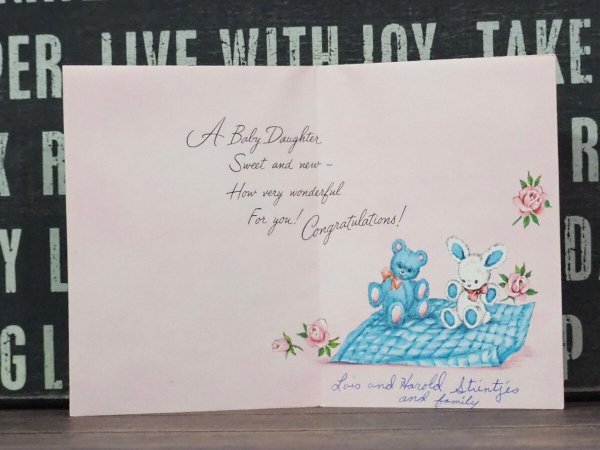 PER LIVE WITH JOY TAKE
A Baby Daughter
Sweet and new –
How very wonderful
For you! Congratulations!
Lois and Harold Strintjes
and family